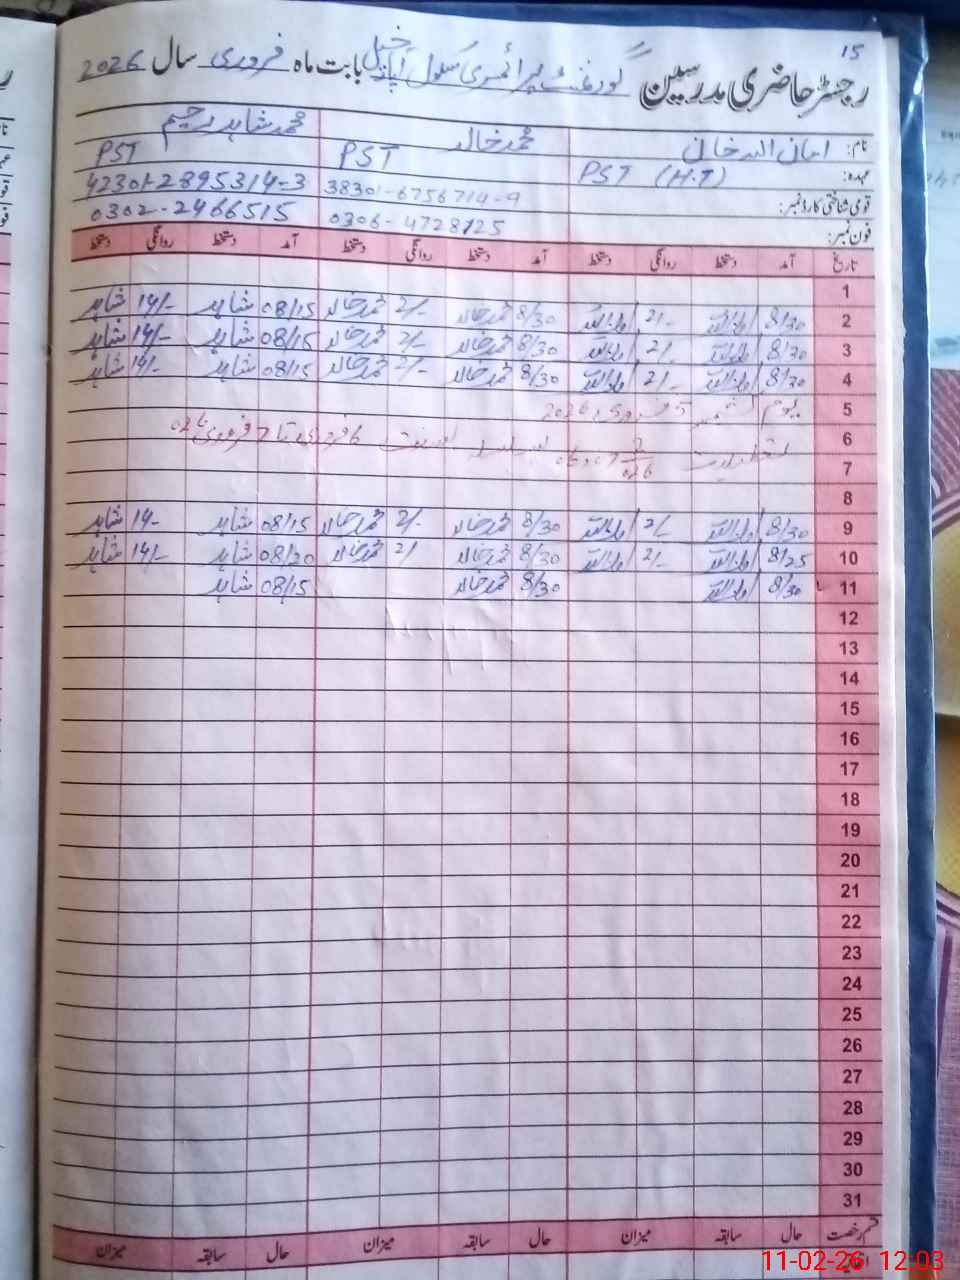 15
رجسٹر حاضری مدرسین گورنمنٹ پرائمری سکول آباد خیل بابت ماہ فروری سال 2026
نام: امان اللہ خان محمد خالد محمد شاہد رحیم
عہدہ: PST (H.T) PST PST
قومی شناختی کارڈ نمبر: 38301-6756714-9 42301-2895314-3
فون نمبر: 0306-4728125 0302-2466515
تاریخ آمد دستخط روانگی دستخط آمد دستخط روانگی دستخط آمد دستخط روانگی دستخط
1
2 8/30 امان اللہ 2/- امان اللہ 8/30 محمد خالد 2/- محمد خالد 08/15 شاہد 14/- شاہد
3 8/30 امان اللہ 2/- امان اللہ 8/30 محمد خالد 2/- محمد خالد 08/15 شاہد 14/- شاہد
4 8/30 امان اللہ 2/- امان اللہ 8/30 محمد خالد 2/- محمد خالد 08/15 شاہد 14/- شاہد
5 یوم کشمیر 5 فروری 2026
6 تعطیلات بسلسلہ بسنت 6 فروری تا 7 فروری 026
7
8
9 8/30 امان اللہ 2/- امان اللہ 8/30 محمد خالد 2/- محمد خالد 08/15 شاہد 14- شاہد
10 8/25 امان اللہ 2/- امان اللہ 8/30 محمد خالد 2/ محمد خالد 08/20 شاہد 14/- شاہد
11 8/30 امان اللہ 8/30 محمد خالد 08/15 شاہد
12
13
14
15
16
17
18
19
20
21
22
23
24
25
26
27
28
29
30
31
قسم رخصت حال سابقہ میزان حال سابقہ میزان حال سابقہ میزان
11-02-26 12:03